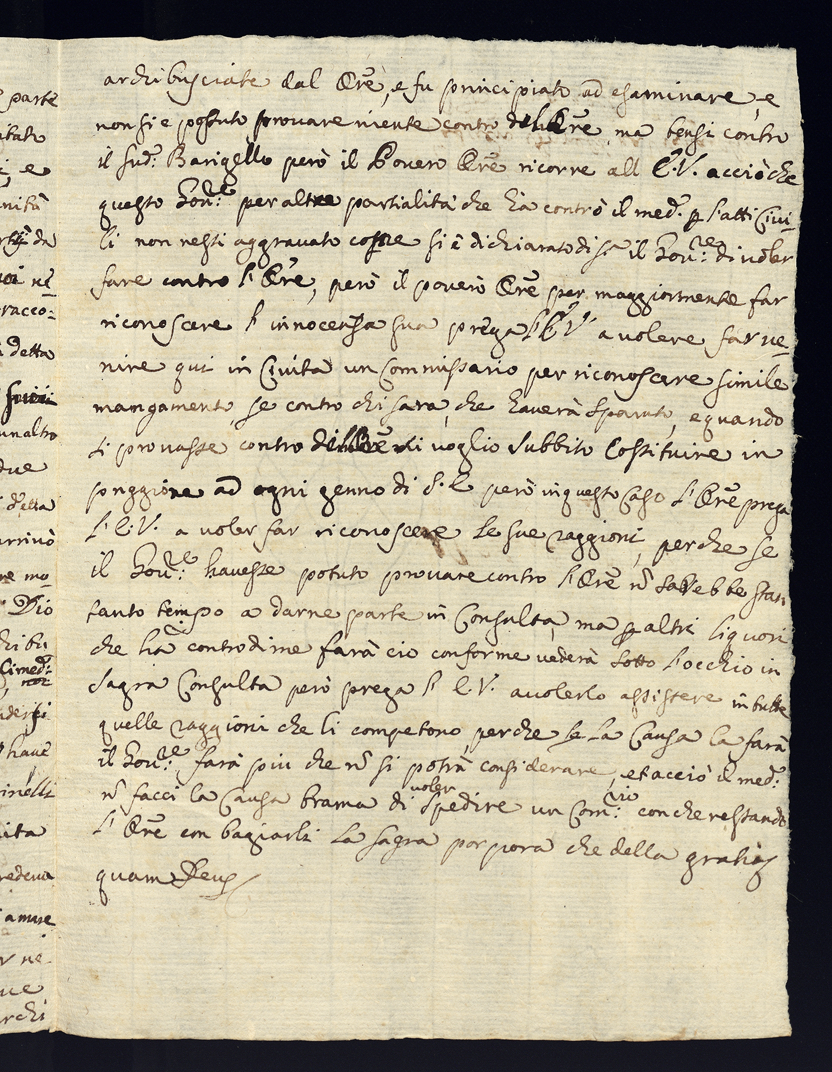 archibusciate dal Ore, e fu principiato ad esaminare, e
non si e possuto provare niente contro dell Ore, ma bensi contro
il sud.º Barigello però il Povero Ore ricorre all E.V. acciò che
questo Gov.re per altre partialità che hà contrò il med.º p l'atti Civi-
li non resti aggravato come si è dichiarato di se il Gov.re di voler
fare contro l'Ore, però il povero Ore per maggiormente far
riconoscere l'innocenza sua prega l'E.V. a volere far ve-
nire qui in Civita un Commissario per riconoscere simile
mangamento, se contro chi sarà, che haverà sparato, e quando
si provasse contro dell Ore si voglio subbito Costituire in
priggione ad ogni genno di S.E. però in questo Caso l'Ore prega
l'E.V. a voler far riconoscere le sue raggioni, perche se
il Gov.re havesse potuto provare contro l'Ore nº sarebbe stat
tanto tempo a darne parte in Consulta, ma p altri liquori
che hà contro di me farà ciò conforme vederà sotto l'occhio in
Sagra Consulta però prega l'E.V. a volerlo assistere in tutte
quelle raggioni che li competono, perche se la Causa la farà
il Gov.re farà piu che nº si potrà considerare, et acciò il med.º
nº facci la Causa brama di voler spedire un Com.rio con che restando
l'Ore con bagiarli la Sagra porpora che della gratia
quam Deus
parte
e
nità
detta
un altro
due
detta
arrivò
Dio
med:º
ita